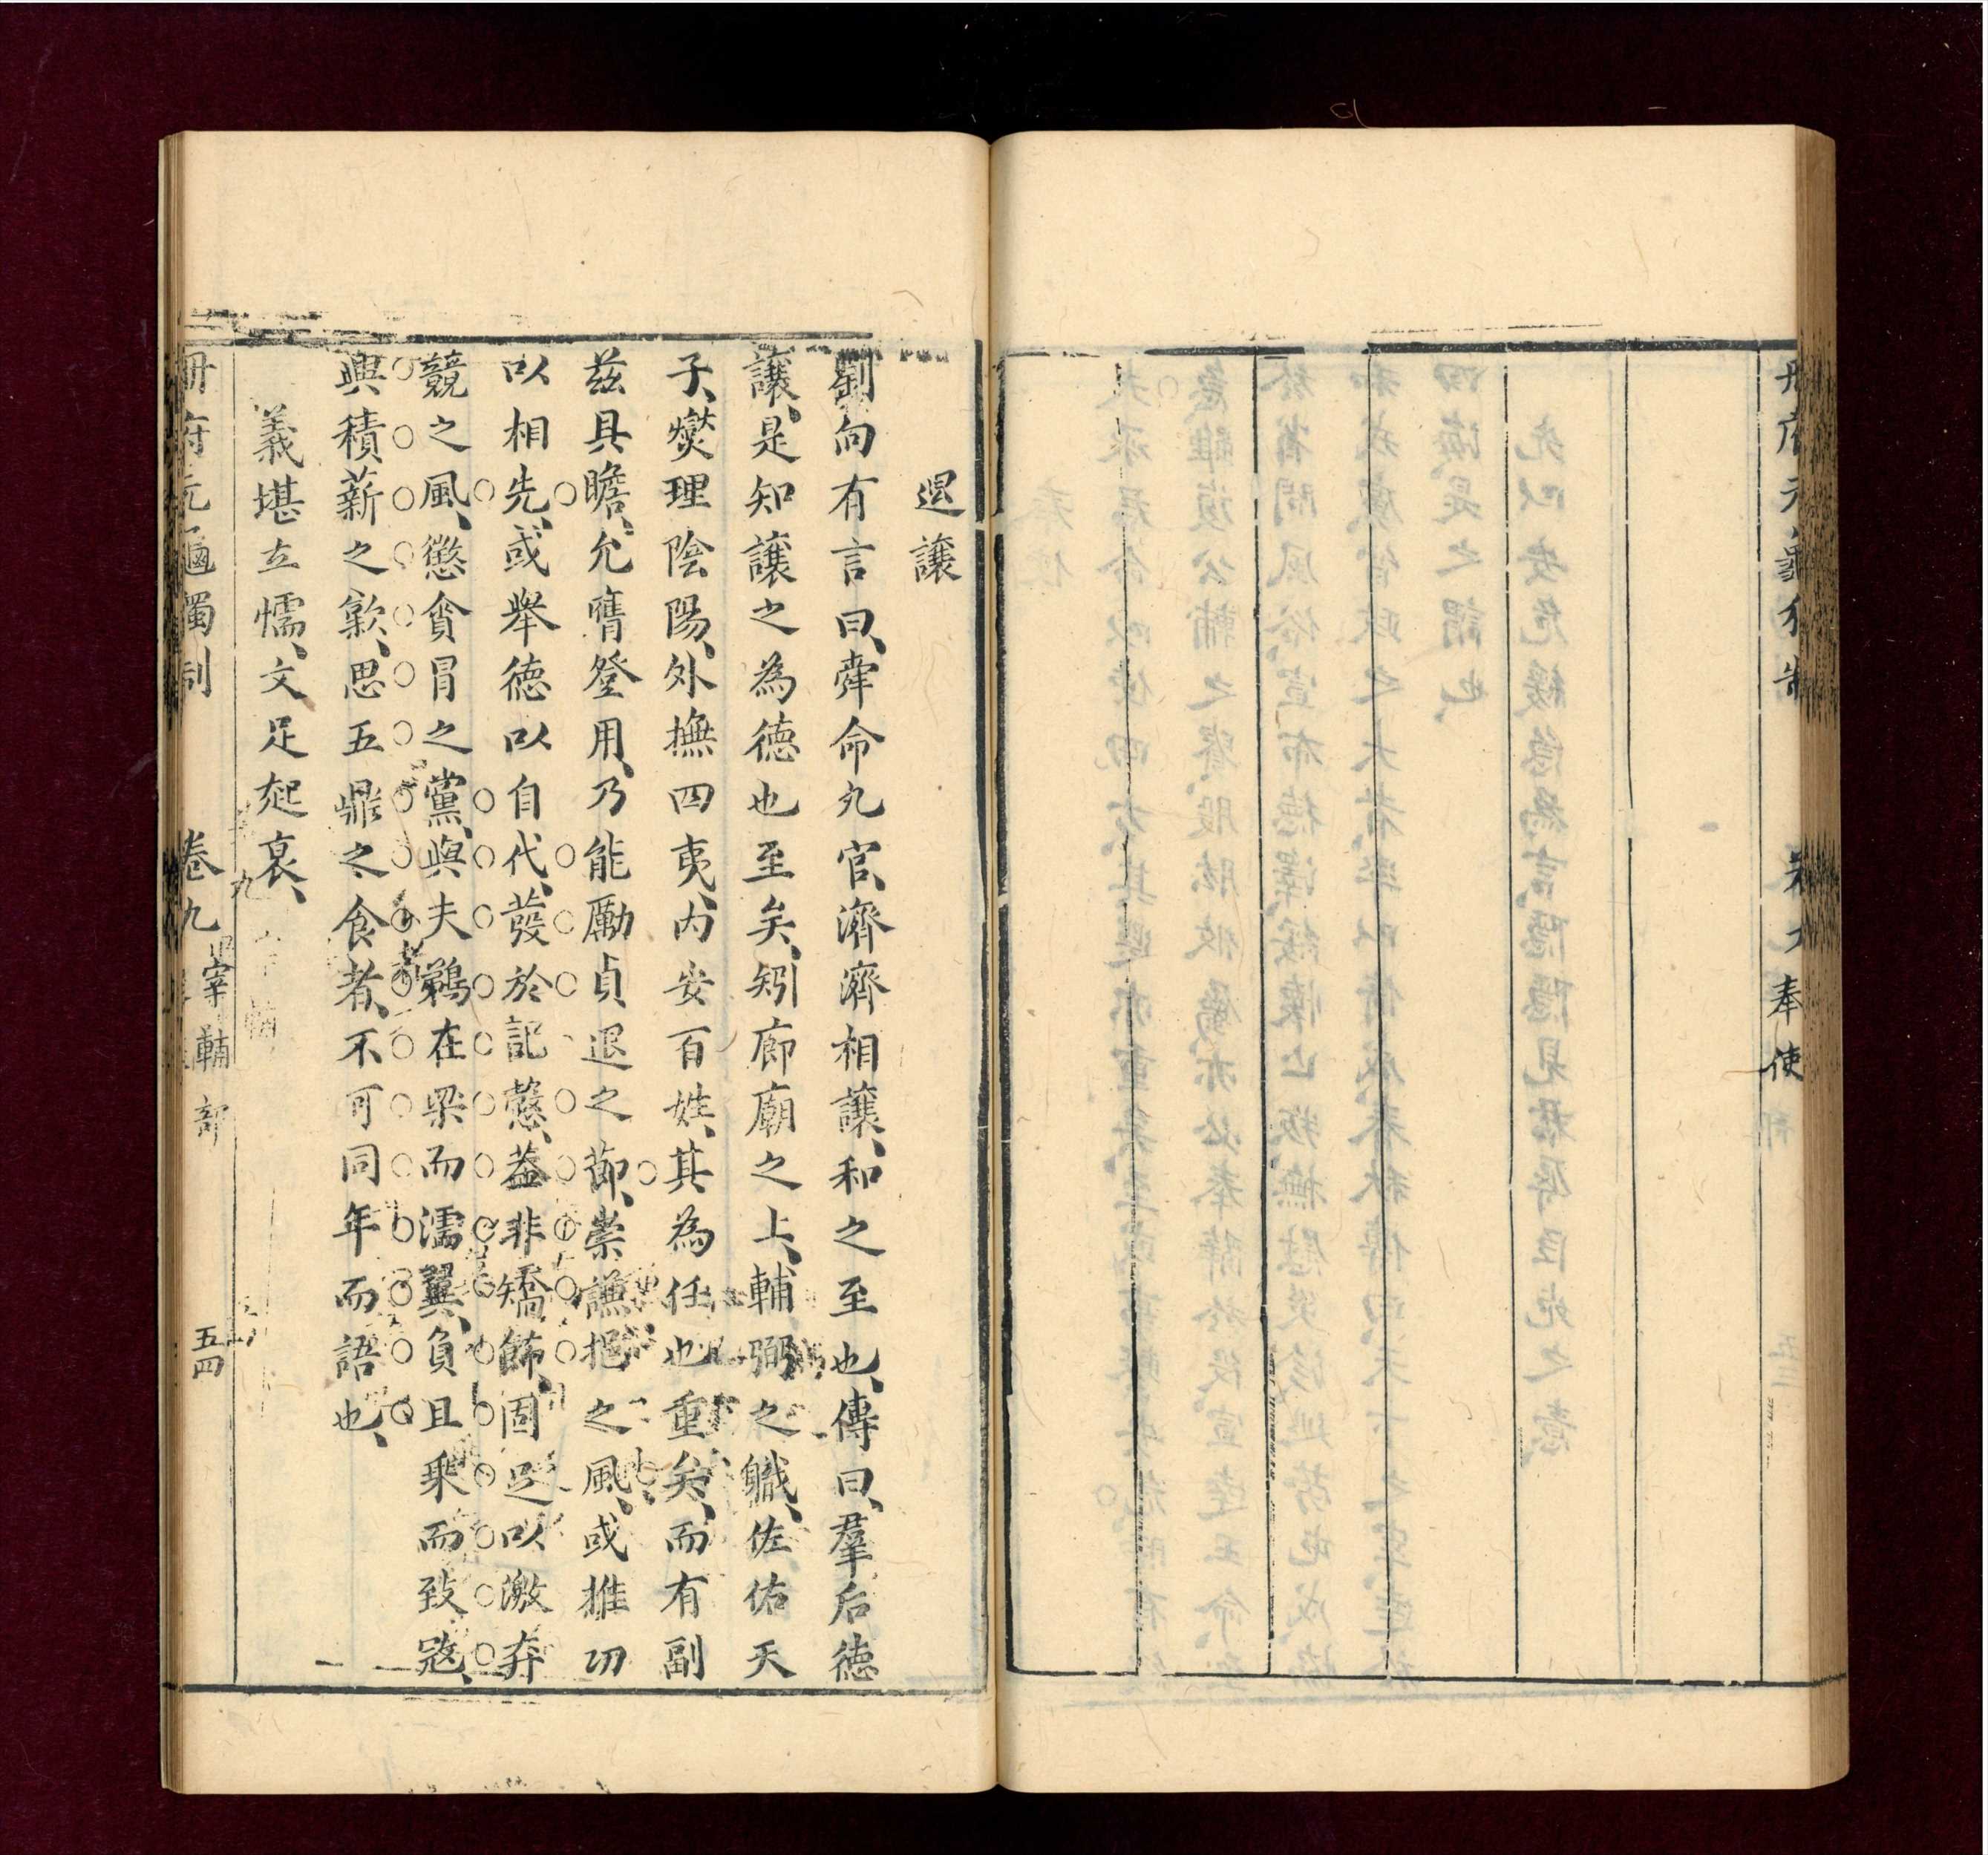 奉使
退讓
劉向有言曰、舜命九官、濟濟相讓、和之至也、傳曰、羣后德
讓、是知讓之為德也至矣、矧廊廟之上、輔弼之職、佐佑天
子、燮理陰陽、外撫四夷、內安百姓、其為任也重矣、而有副
茲具瞻、允膺登用、乃能勵貞退之節、崇謙挹之風、或推功
以相先、或舉德以自代、發於記慤、蓋非矯飾、固足以激奔
競之風、懲貪冒之黨、與夫鵜在梁而濡翼、負且乘而致寇、
興積薪之歎、思五鼎之食者、不可同年而語也、
義堪立懦、文足起衰、
冊府元龜獨制 卷九 宰輔部 五四